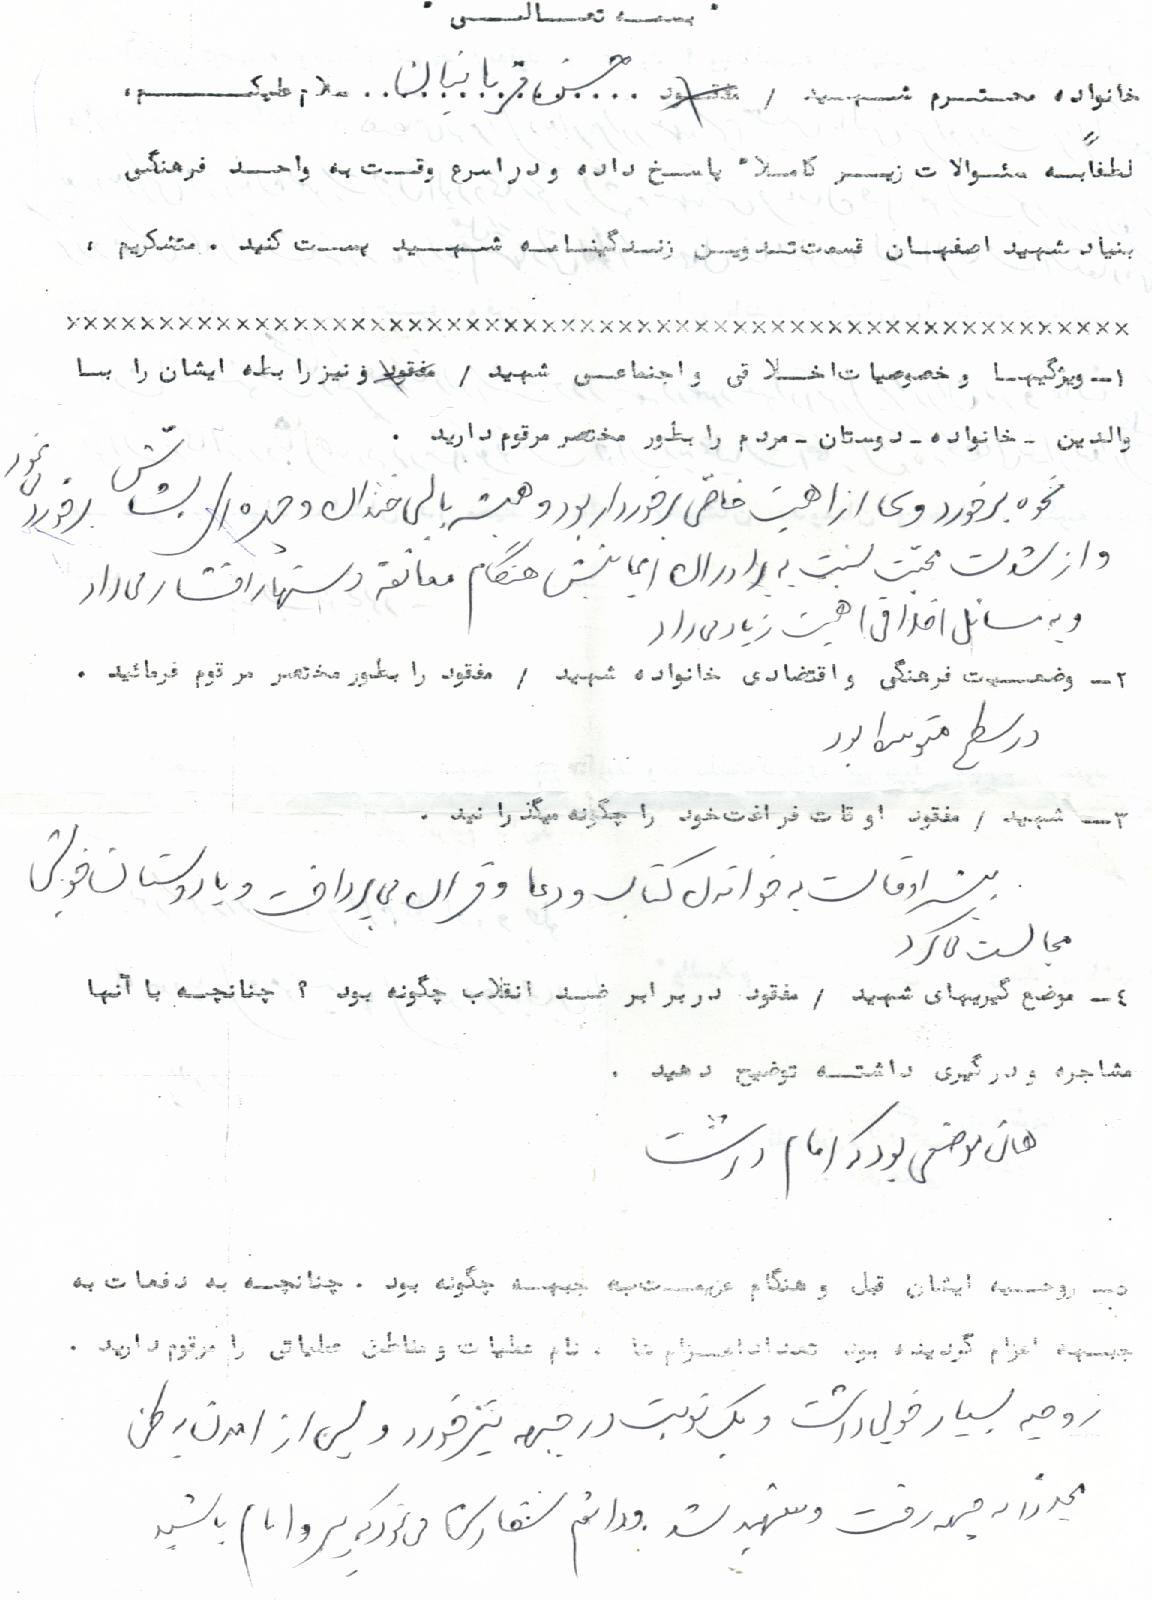 بسمه تعالی
خانواده محترم شهید / مفقود ... حسن قربانیان ... سلام علیکم،
لطفاً به سئوالات زیر کاملاً پاسخ داده و در اسرع وقت به واحد فرهنگی
بنیاد شهید اصفهان قسمت تدوین زندگینامه شهید پست کنید . متشکریم ،
××××××××××××××××××××××××××××××××××××××××××××××××××××××××
۱- ویژگیها و خصوصیات اخلاقی و اجتماعی شهید / مفقود و نیز رابطه ایشان را با
والدین - خانواده - دوستان - مردم را بطور مختصر مرقوم دارید .
نحوه برخورد وی از اهمیت خاصی برخوردار بود و همیشه با لبی خندان و چهره ای بشاش برخورد می نمود
و از شدت محبت نسبت به برادران ایمانیش هنگام معانقه دستها را فشار می داد
و به مسائل اخلاقی اهمیت زیاد می داد
۲- وضعیت فرهنگی و اقتصادی خانواده شهید / مفقود را بطور مختصر مرقوم فرمائید .
در سطح متوسط بود
۳- شهید / مفقود اوقات فراغت خود را چگونه میگذرانید .
بیشتر اوقات به خواندن کتاب و دعا و قرآن می پرداخت و با دوستان خویش
مجالست می کرد
٤- موضع گیریهای شهید / مفقود در برابر ضد انقلاب چگونه بود ؟ چنانچه با آنها
مشاجره و درگیری داشته توضیح دهید .
همان موضعی بود که امام داشت
۵- روحیه ایشان قبل و هنگام عزیمت به جبهه چگونه بود . چنانچه به دفعات به
جبهه اعزام گردیده بود تعداد اعزام ها ، نام عملیات و مناطق عملیاتی را مرقوم دارید .
روحیه بسیار خوبی داشت و یک نوبت در جبهه تیر خورد و پس از آمدن به وطن
مجدداً به جبهه رفت و شهید شد و دائم سفارش می نمود که پیرو امام باشید